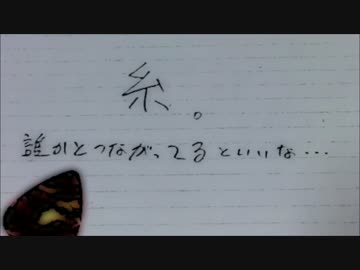 糸。
誰かとつながってるといいな…